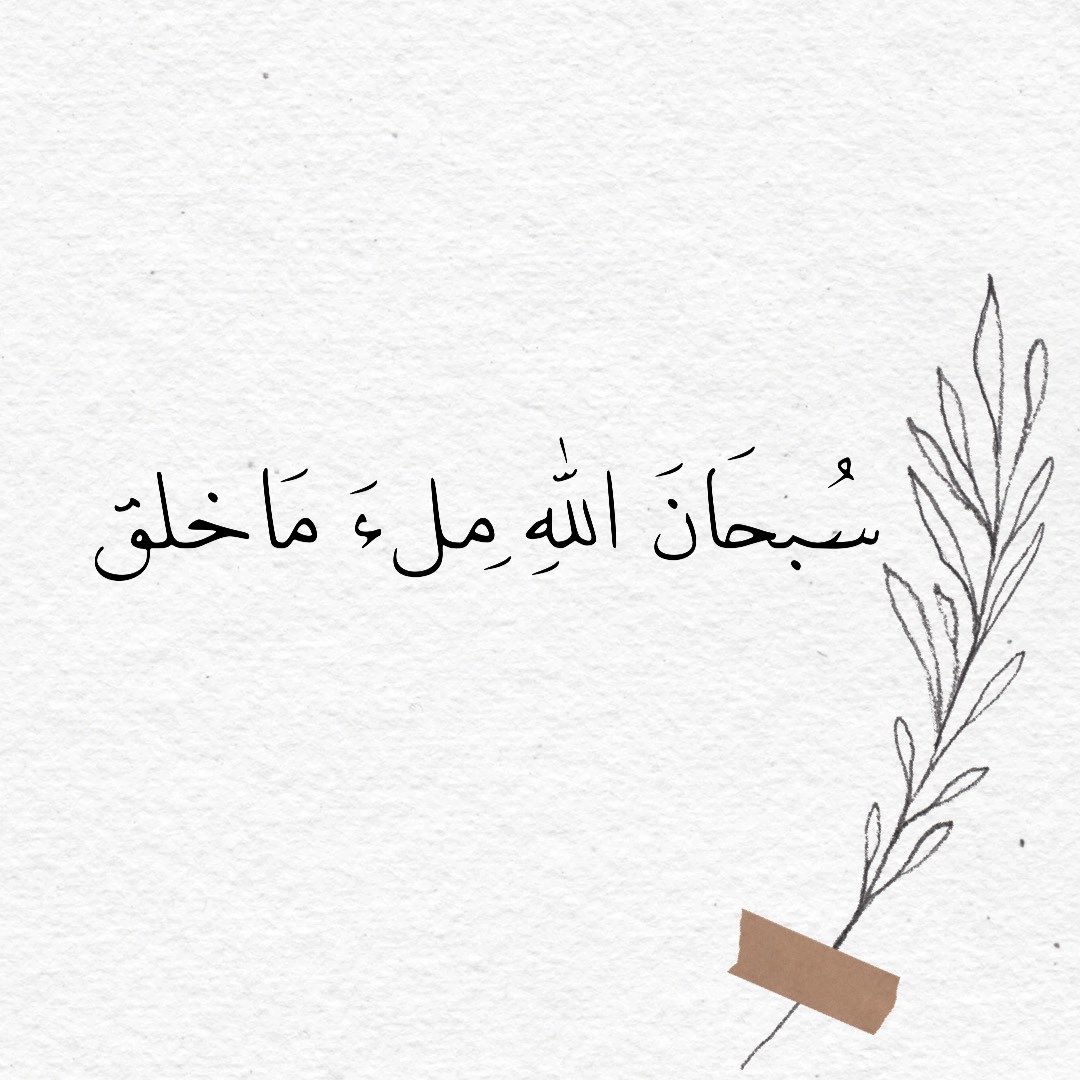 سُبحَانَ اللّٰهِ مِلءَ مَاخلق